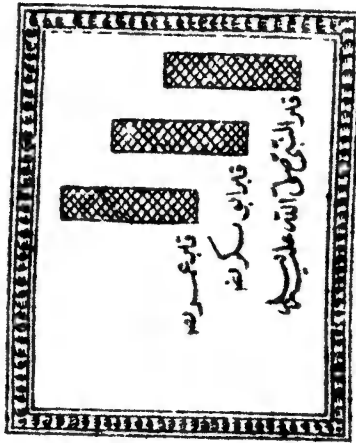 قبر النبي صلى الله عليه وسلم
قبر ابى بكر رضه
قبر عمر رضه